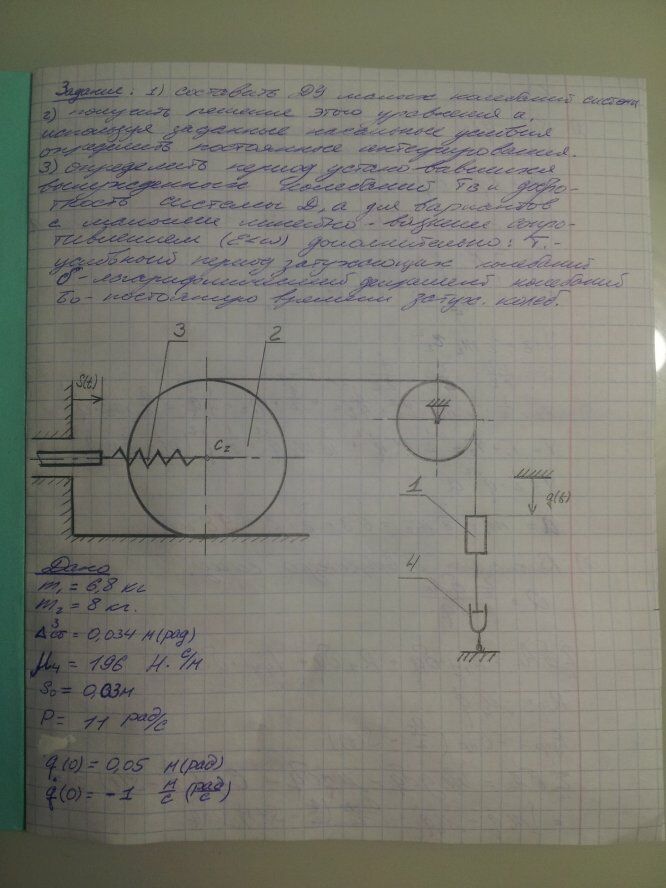 Задание: 1) составить ДУ малых колебаний системы
2) получить решение этого уравнения и,
используя заданные начальные условия
определить постоянные интегрирования.
3) определить период установившихся
вынужденных колебаний Tв и добро-
тность системы D, а для вариантов
с малыми линейно-вязким сопро-
тивлением (ε<ω) дополнительно: T₁-
условный период затухающих колебаний
δ-логарифмический декремент колебаний
τ₀-постоянную времени затух. колеб.
3
2
S(t)
C₂
1
q(t)
4
Дано
m₁ = 6,8 кг
m₂ = 8 кг.
Δ³ст = 0,034 м(рад)
μ₄ = 196 Н·с/м
S₀ = 0,03м
P = 11 рад/с
q(0) = 0,05 м(рад)
q̇(0) = -1 м/с (рад/с)